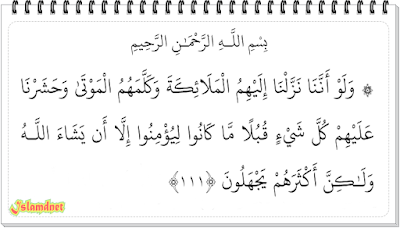 بِسْمِ اللَّـهِ الرَّحْمَـٰنِ الرَّحِيمِ
۞ وَلَوْ أَنَّنَا نَزَّلْنَا إِلَيْهِمُ الْمَلَائِكَةَ وَكَلَّمَهُمُ الْمَوْتَىٰ وَحَشَرْنَا
عَلَيْهِمْ كُلَّ شَيْءٍ قُبُلًا مَّا كَانُوا لِيُؤْمِنُوا إِلَّا أَن يَشَاءَ اللَّـهُ
وَلَـٰكِنَّ أَكْثَرَهُمْ يَجْهَلُونَ ﴿١١١﴾
Islamdnet